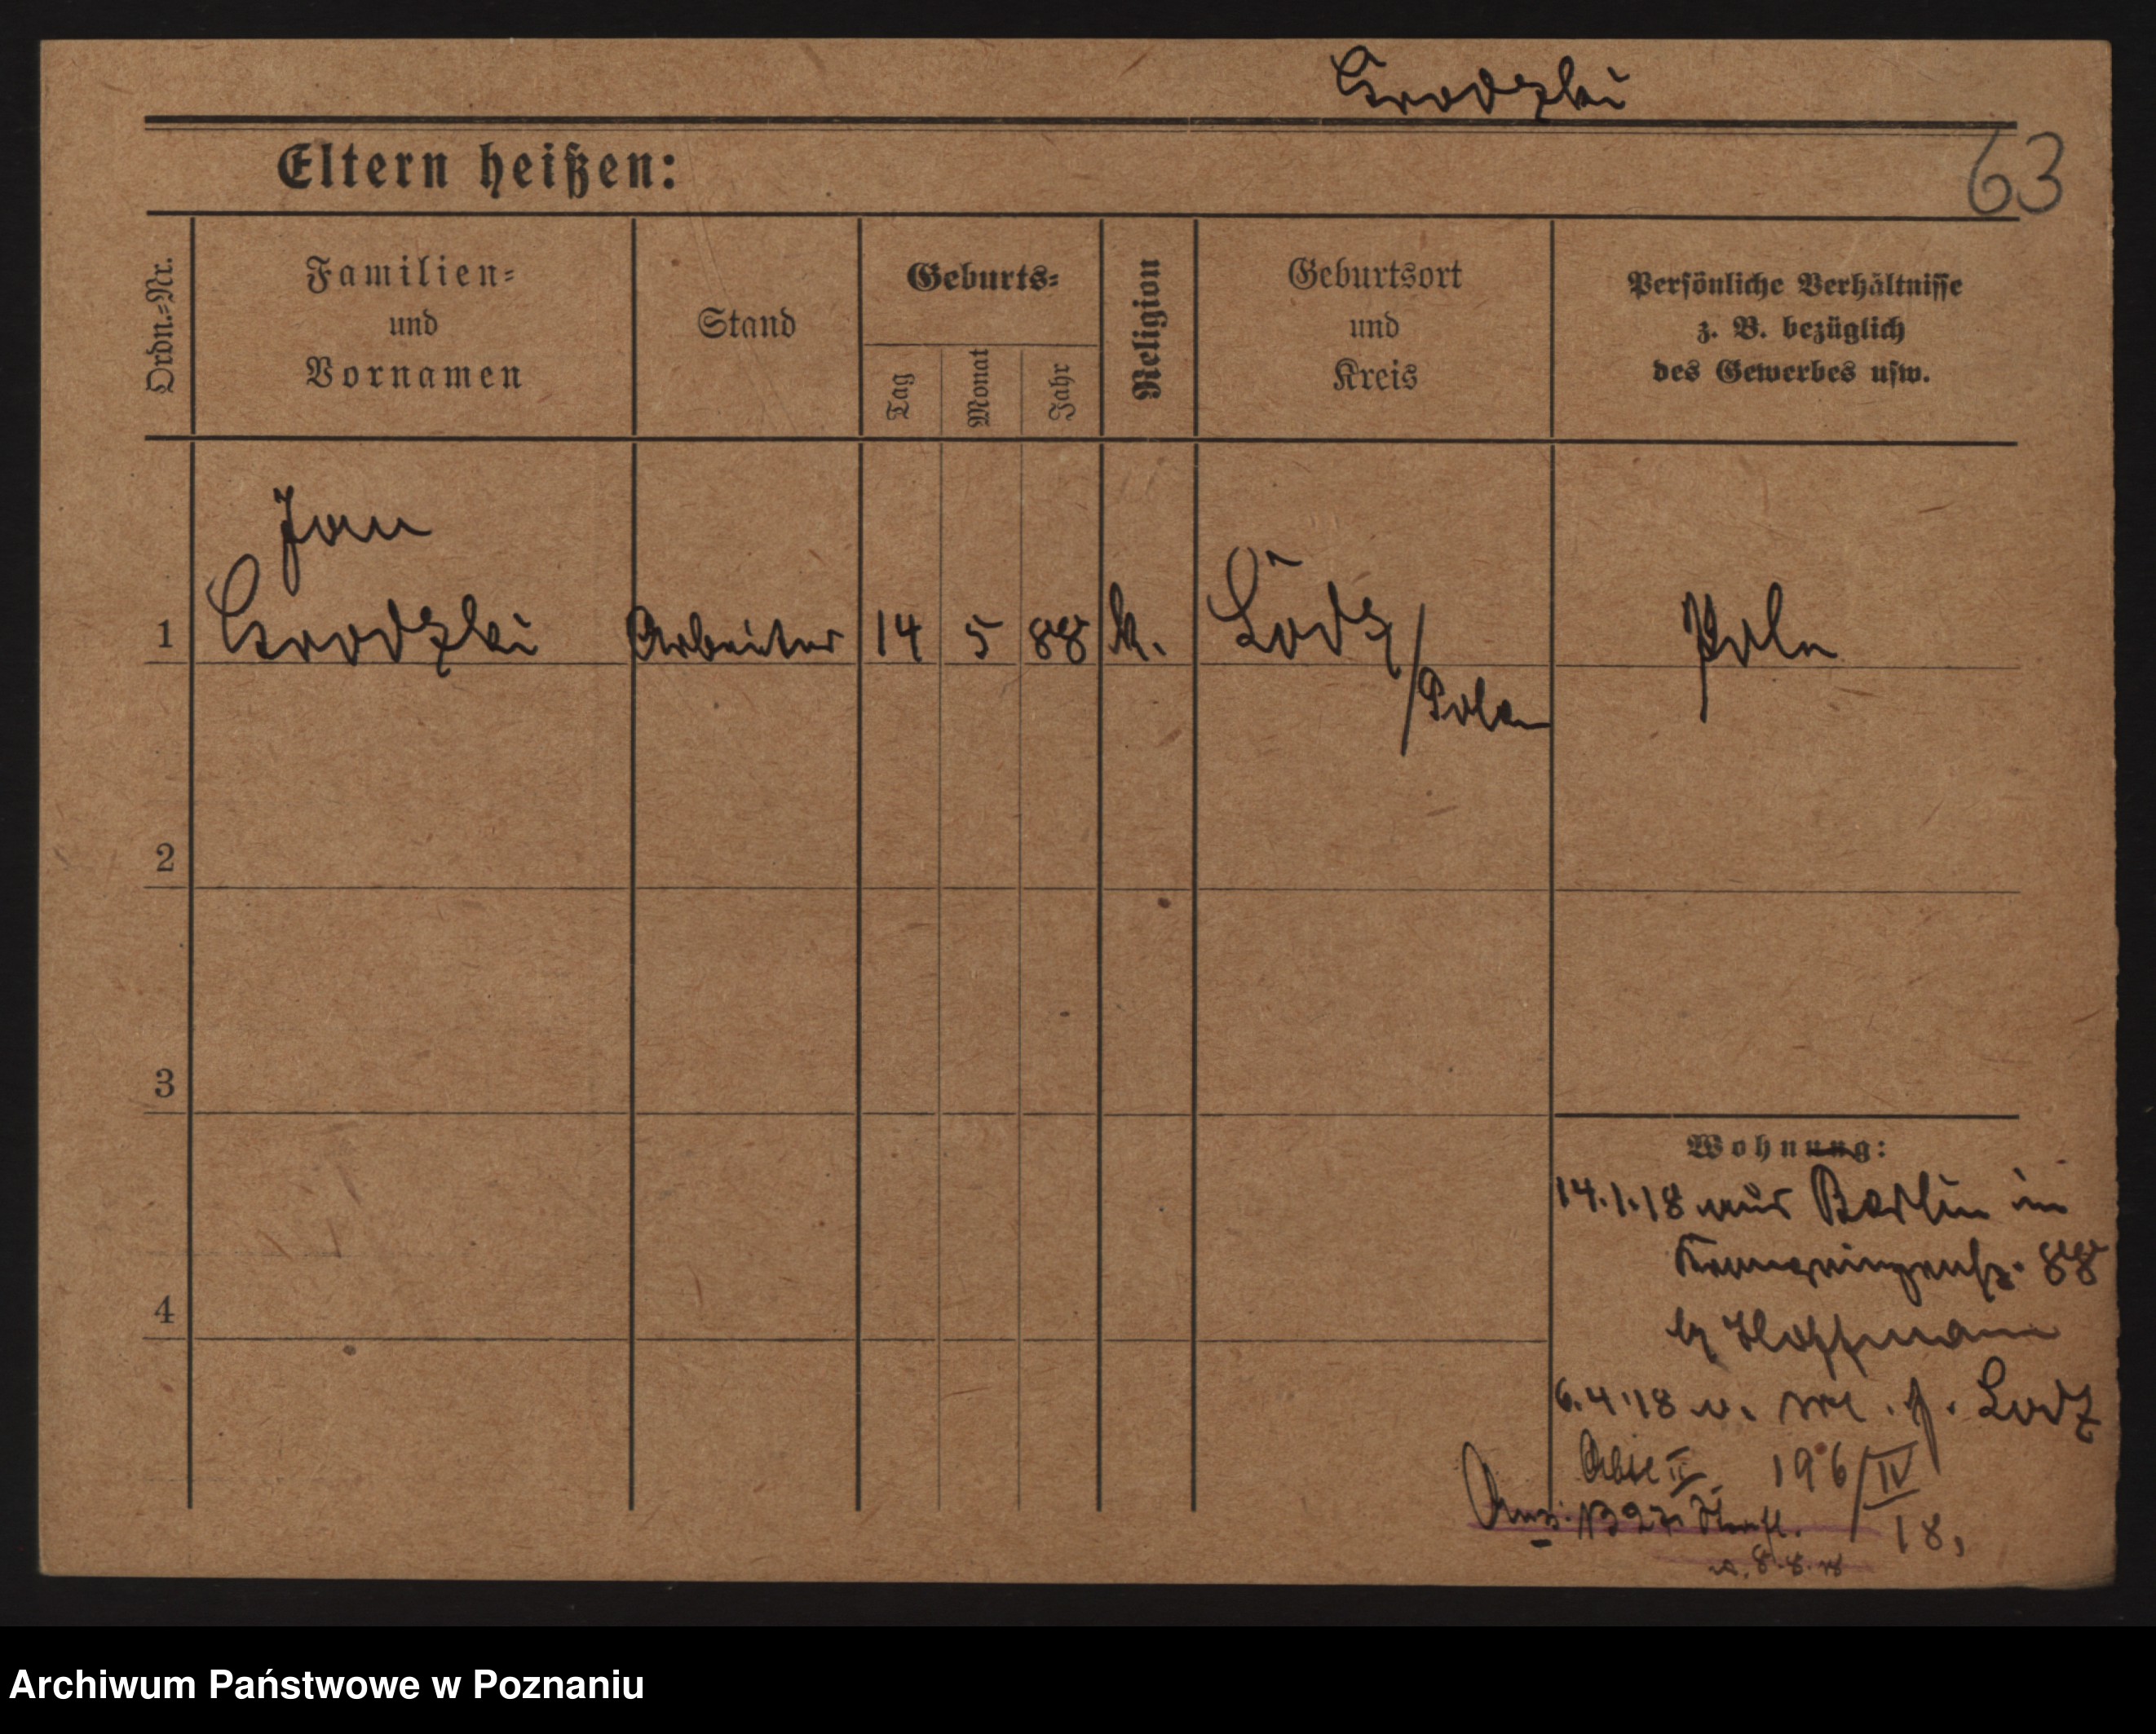 Grodzki
63
Eltern heißen:
Ordn.-Nr.
Familien-
und
Vornamen
Stand
Geburts-
Tag
Monat
Jahr
Religion
Geburtsort
und
Kreis
Persönliche Verhältnisse
z. B. bezüglich
des Gewerbes usw.
Jan
1 Grodzki Arbeiter 14 5 88 k. Lodz Pole
/Polen
2
3
4
Wohnung:
14.1.18 aus Berlin in
Kronprinzenstr. 88
bz Hoffmann
6.4.18 n. Lodz
196/IV
18,
8.8.18
Archiwum Państwowe w Poznaniu